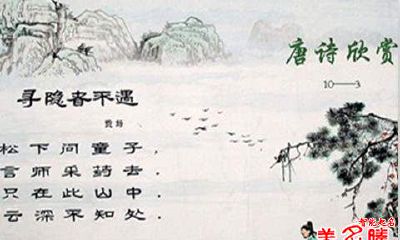 唐诗欣赏
10——3
寻隐者不遇
贾岛
松下问童子，
言师采药去．
只在此山中．
云深不知处．
智能起名
美名腾